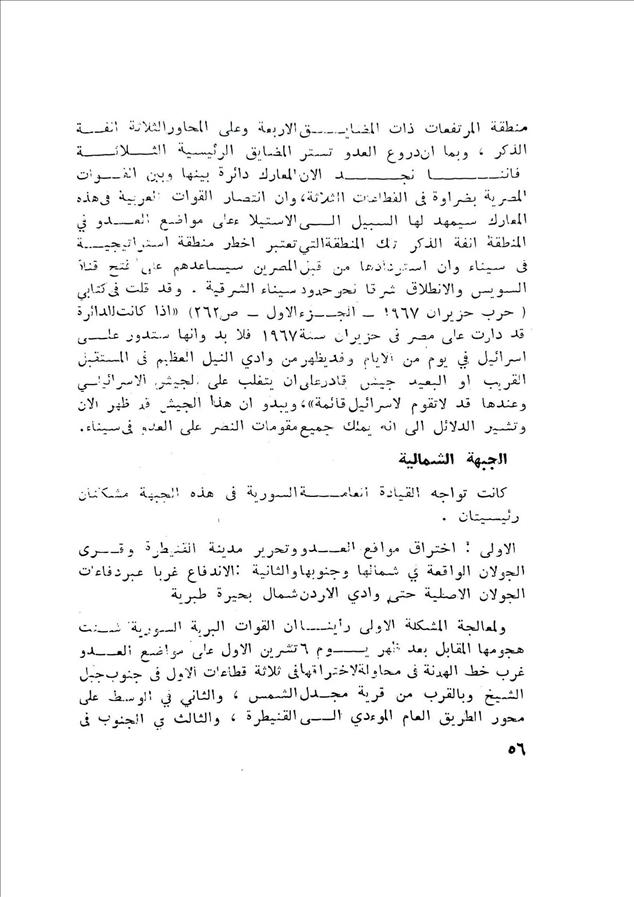 منطقة المرتفعات ذات المضايق الاربعة وعلى المحاور الثلاثة انفة
الذكر ، وبما ان دروع العدو تستر المضايق الرئيسية الثلاثة
فاننا نجد الان المعارك دائرة بينها وبين القوات
المصرية بضراوة فى القطاعات الثلاثة، وان انتصار القوات العربية فى هذه
المعارك سيمهد لها السبيل الى الاستيلاء على مواضع العدو في
المنطقة انفة الذكر تلك المنطقة التي تعتبر اخطر منطقة استراتيجية
فى سيناء وان استردادها من قبل المصرين سيساعدهم على فتح قناة
السويس والانطلاق شرقا نحو حدود سيناء الشرقية . وقد قلت فى كتابي
( حرب حزيران ١٩٦٧ ــ الجزء الاول ــ ص٢٦٢) «اذا كانت الدائرة
قد دارت على مصر فى حزيران سنة ١٩٦٧ فلا بد وانها ستدور على
اسرائيل في يوم من الايام وقد يظهر من وادي النيل العظيم فى المستقبل
القريب او البعيد جيش قادر على ان يتغلب على الجيش الاسرائيلي
وعندها قد لا تقوم لاسرائيل قائمة»، ويبدو ان هذا الجيش قد ظهر الان
وتشير الدلائل الى انه يملك جميع مقومات النصر على العدو فى سيناء.
الجبهة الشمالية
كانت تواجه القيادة العامة السورية فى هذه الجبهة مشكلتان
رئيسيتان .
الاولى : اختراق مواقع العدو وتحرير مدينة القنيطرة وقرى
الجولان الواقعة في شمالها وجنوبها والثانية :الاندفاع غربا عبر دفاعات
الجولان الاصلية حتى وادي الاردن شمال بحيرة طبرية
ولمعالجة المشكلة الاولى رأينا ان القوات البرية السورية شنت
هجومها المقابل بعد ظهر يوم ٦ تشرين الاول على مواضع العدو
غرب خط الهدنة فى محاولة لاختراقها فى ثلاثة قطاعات الاول فى جنوب جبل
الشيخ وبالقرب من قرية مجدل الشمس ، والثاني في الوسط على
محور الطريق العام الموءدي الى القنيطرة ، والثالث في الجنوب فى
٥٦